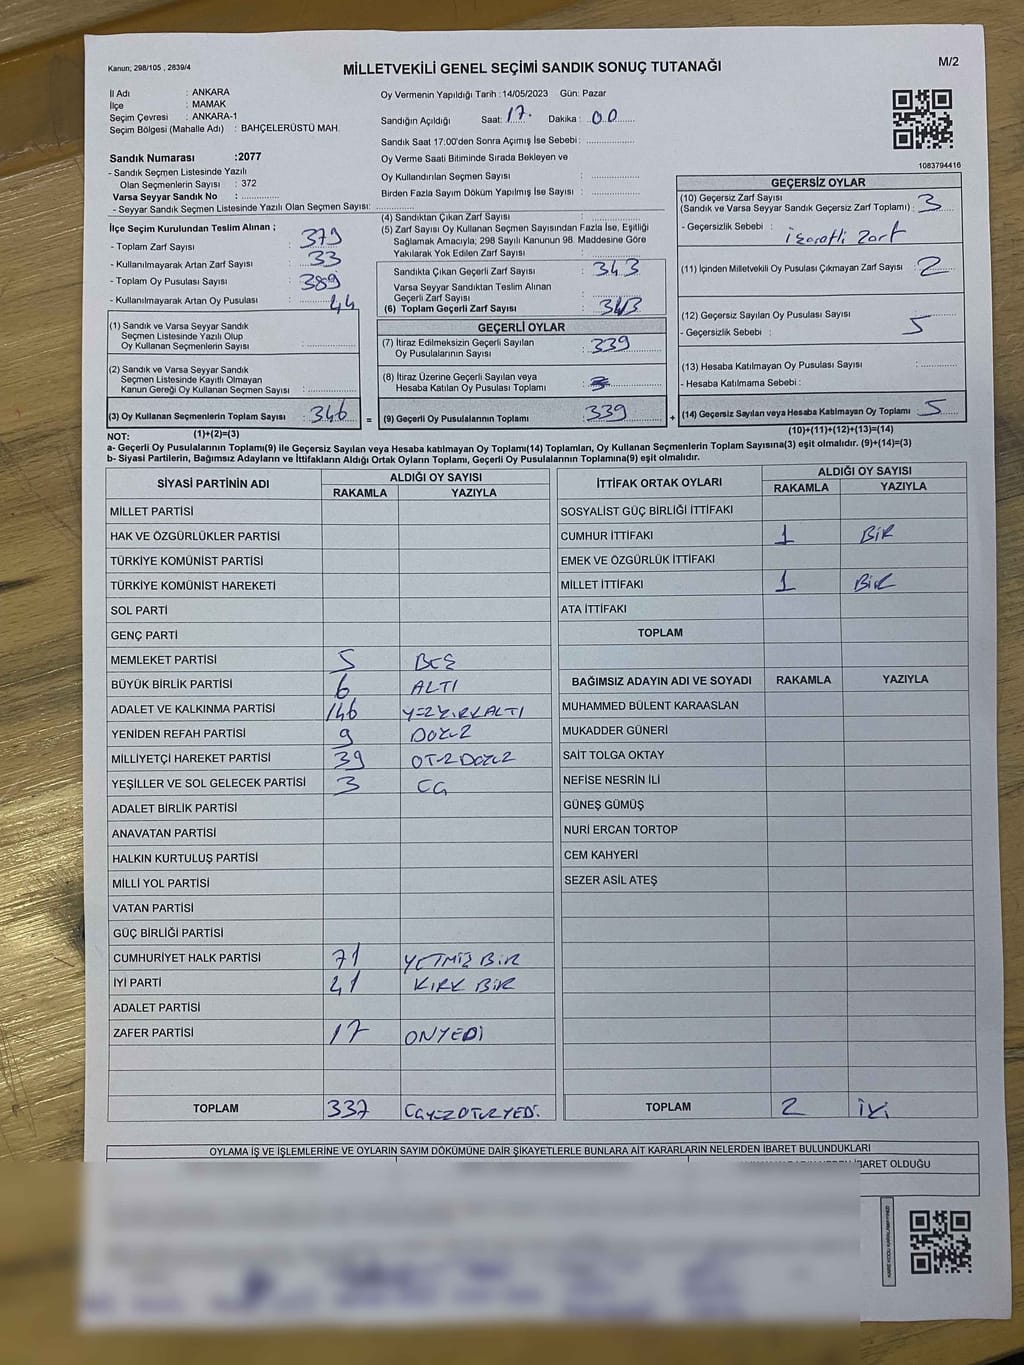 Kanun; 298/105 , 2839/4
MİLLETVEKİLİ GENEL SEÇİMİ SANDIK SONUÇ TUTANAĞI
M/2
İl Adı : ANKARA
İlçe : MAMAK
Seçim Çevresi : ANKARA-1
Seçim Bölgesi (Mahalle Adı) : BAHÇELERÜSTÜ MAH.
Sandık Numarası :2077
- Sandık Seçmen Listesinde Yazılı
Olan Seçmenlerin Sayısı : 372
Varsa Seyyar Sandık No :
- Seyyar Sandık Seçmen Listesinde Yazılı Olan Seçmen Sayısı:
Oy Vermenin Yapıldığı Tarih :14/05/2023 Gün: Pazar
Sandığın Açıldığı Saat: 17. Dakika : 00
Sandık Saat 17:00'den Sonra Açımış İse Sebebi :
Oy Verme Saati Bitiminde Sırada Bekleyen ve
Oy Kullandırılan Seçmen Sayısı :
Birden Fazla Sayım Döküm Yapılmış İse Sayısı :
1083794416
İlçe Seçim Kurulundan Teslim Alınan ;
- Toplam Zarf Sayısı : 379
- Kullanılmayarak Artan Zarf Sayısı : 33
- Toplam Oy Pusulası Sayısı : 389
- Kullanılmayarak Artan Oy Pusulası : 44
(1) Sandık ve Varsa Seyyar Sandık
Seçmen Listesinde Yazılı Olup
Oy Kullanan Seçmenlerin Sayısı :
(2) Sandık ve Varsa Seyyar Sandık
Seçmen Listesinde Kayıtlı Olmayan
Kanun Gereği Oy Kullanan Seçmen Sayısı :
(3) Oy Kullanan Seçmenlerin Toplam Sayısı : 346 =
(1)+(2)=(3)
(4) Sandıktan Çıkan Zarf Sayısı :
(5) Zarf Sayısı Oy Kullanan Seçmen Sayısından Fazla İse, Eşitliği
Sağlamak Amacıyla; 298 Sayılı Kanunun 98. Maddesine Göre
Yakılarak Yok Edilen Zarf Sayısı :
Sandıkta Çıkan Geçerli Zarf Sayısı : 343
Varsa Seyyar Sandıktan Teslim Alınan
Geçerli Zarf Sayısı :
(6) Toplam Geçerli Zarf Sayısı : 343
GEÇERLİ OYLAR
(7) İtiraz Edilmeksizin Geçerli Sayılan
Oy Pusulalarının Sayısı : 339
(8) İtiraz Üzerine Geçerli Sayılan veya
Hesaba Katılan Oy Pusulası Toplamı :
(9) Geçerli Oy Pusulalarının Toplamı : 339 +
GEÇERSİZ OYLAR
(10) Geçersiz Zarf Sayısı
(Sandık ve Varsa Seyyar Sandık Geçersiz Zarf Toplamı) : 3
- Geçersizlik Sebebi : işaretli Zarf
(11) İçinden Milletvekili Oy Pusulası Çıkmayan Zarf Sayısı : 2
(12) Geçersiz Sayılan Oy Pusulası Sayısı :
- Geçersizlik Sebebi : 5
(13) Hesaba Katılmayan Oy Pusulası Sayısı :
- Hesaba Katılmama Sebebi :
(14) Geçersiz Sayılan veya Hesaba Katılmayan Oy Toplamı : 5
(10)+(11)+(12)+(13)=(14)
NOT:
a- Geçerli Oy Pusulalarının Toplamı(9) ile Geçersiz Sayılan veya Hesaba katılmayan Oy Toplamı(14) Toplamları, Oy Kullanan Seçmenlerin Toplam Sayısına(3) eşit olmalıdır. (9)+(14)=(3)
b- Siyasi Partilerin, Bağımsız Adayların ve İttifakların Aldığı Ortak Oyların Toplamı, Geçerli Oy Pusulalarının Toplamına(9) eşit olmalıdır.
SİYASİ PARTİNİN ADI ALDIĞI OY SAYISI
RAKAMLA YAZIYLA
MİLLET PARTİSİ
HAK VE ÖZGÜRLÜKLER PARTİSİ
TÜRKİYE KOMÜNİST PARTİSİ
TÜRKİYE KOMÜNİST HAREKETİ
SOL PARTİ
GENÇ PARTİ
MEMLEKET PARTİSİ 5 BEŞ
BÜYÜK BİRLİK PARTİSİ 6 ALTI
ADALET VE KALKINMA PARTİSİ 146
YENİDEN REFAH PARTİSİ 9
MİLLİYETÇİ HAREKET PARTİSİ 39
YEŞİLLER VE SOL GELECEK PARTİSİ 3
ADALET BİRLİK PARTİSİ
ANAVATAN PARTİSİ
HALKIN KURTULUŞ PARTİSİ
MİLLİ YOL PARTİSİ
VATAN PARTİSİ
GÜÇ BİRLİĞİ PARTİSİ
CUMHURİYET HALK PARTİSİ 71 YETMİŞ BİR
İYİ PARTİ 41 KIRK BİR
ADALET PARTİSİ
ZAFER PARTİSİ 17 ONYEDİ
TOPLAM 337
İTTİFAK ORTAK OYLARI ALDIĞI OY SAYISI
RAKAMLA YAZIYLA
SOSYALİST GÜÇ BİRLİĞİ İTTİFAKI
CUMHUR İTTİFAKI 1 BİR
EMEK VE ÖZGÜRLÜK İTTİFAKI
MİLLET İTTİFAKI 1 BİR
ATA İTTİFAKI
TOPLAM
BAĞIMSIZ ADAYIN ADI VE SOYADI RAKAMLA YAZIYLA
MUHAMMED BÜLENT KARAASLAN
MUKADDER GÜNERİ
SAİT TOLGA OKTAY
NEFİSE NESRİN İLİ
GÜNEŞ GÜMÜŞ
NURİ ERCAN TORTOP
CEM KAHYERİ
SEZER ASİL ATEŞ
TOPLAM 2 İKİ
OYLAMA İŞ VE İŞLEMLERİNE VE OYLARIN SAYIM DÖKÜMÜNE DAİR ŞİKAYETLERLE BUNLARA AİT KARARLARIN NELERDEN İBARET BULUNDUKLARI
İBARET OLDUĞU
KARE KODU KARALAMAYINIZ!